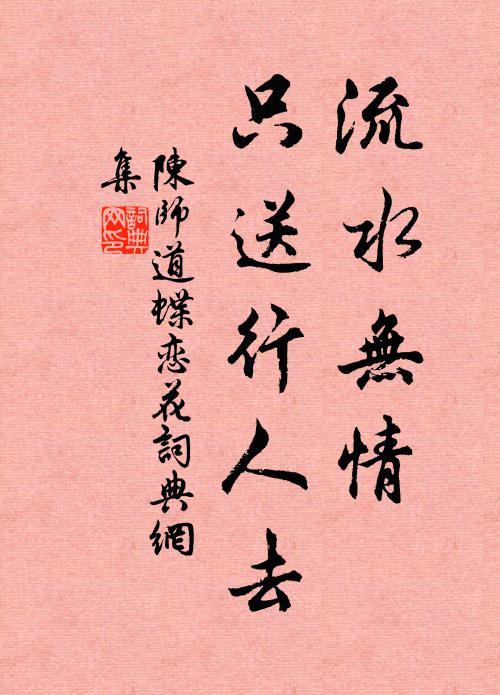 流水無情
只送行人去
陳師道蝶恋花詞典網
集
詞典
网印